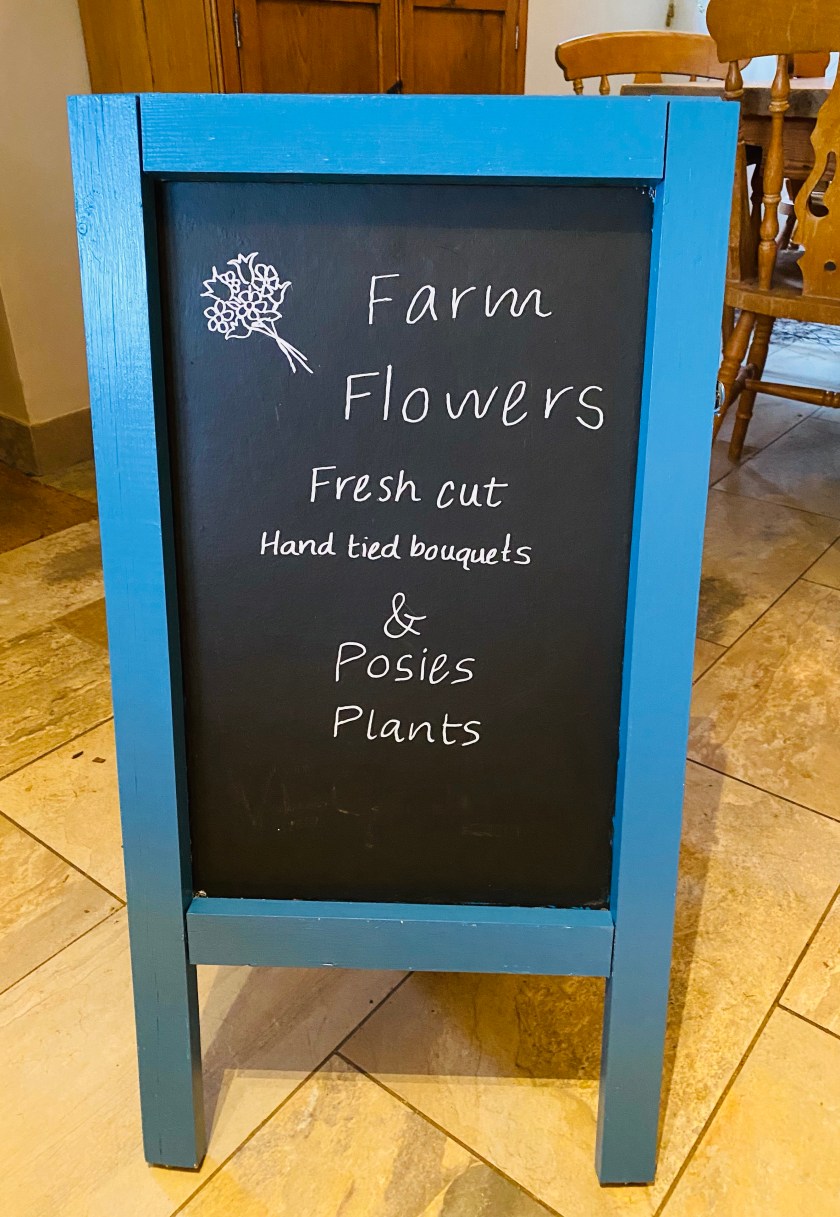 Farm
Flowers
Fresh cut
Hand tied bouquets
&
Posies
Plants